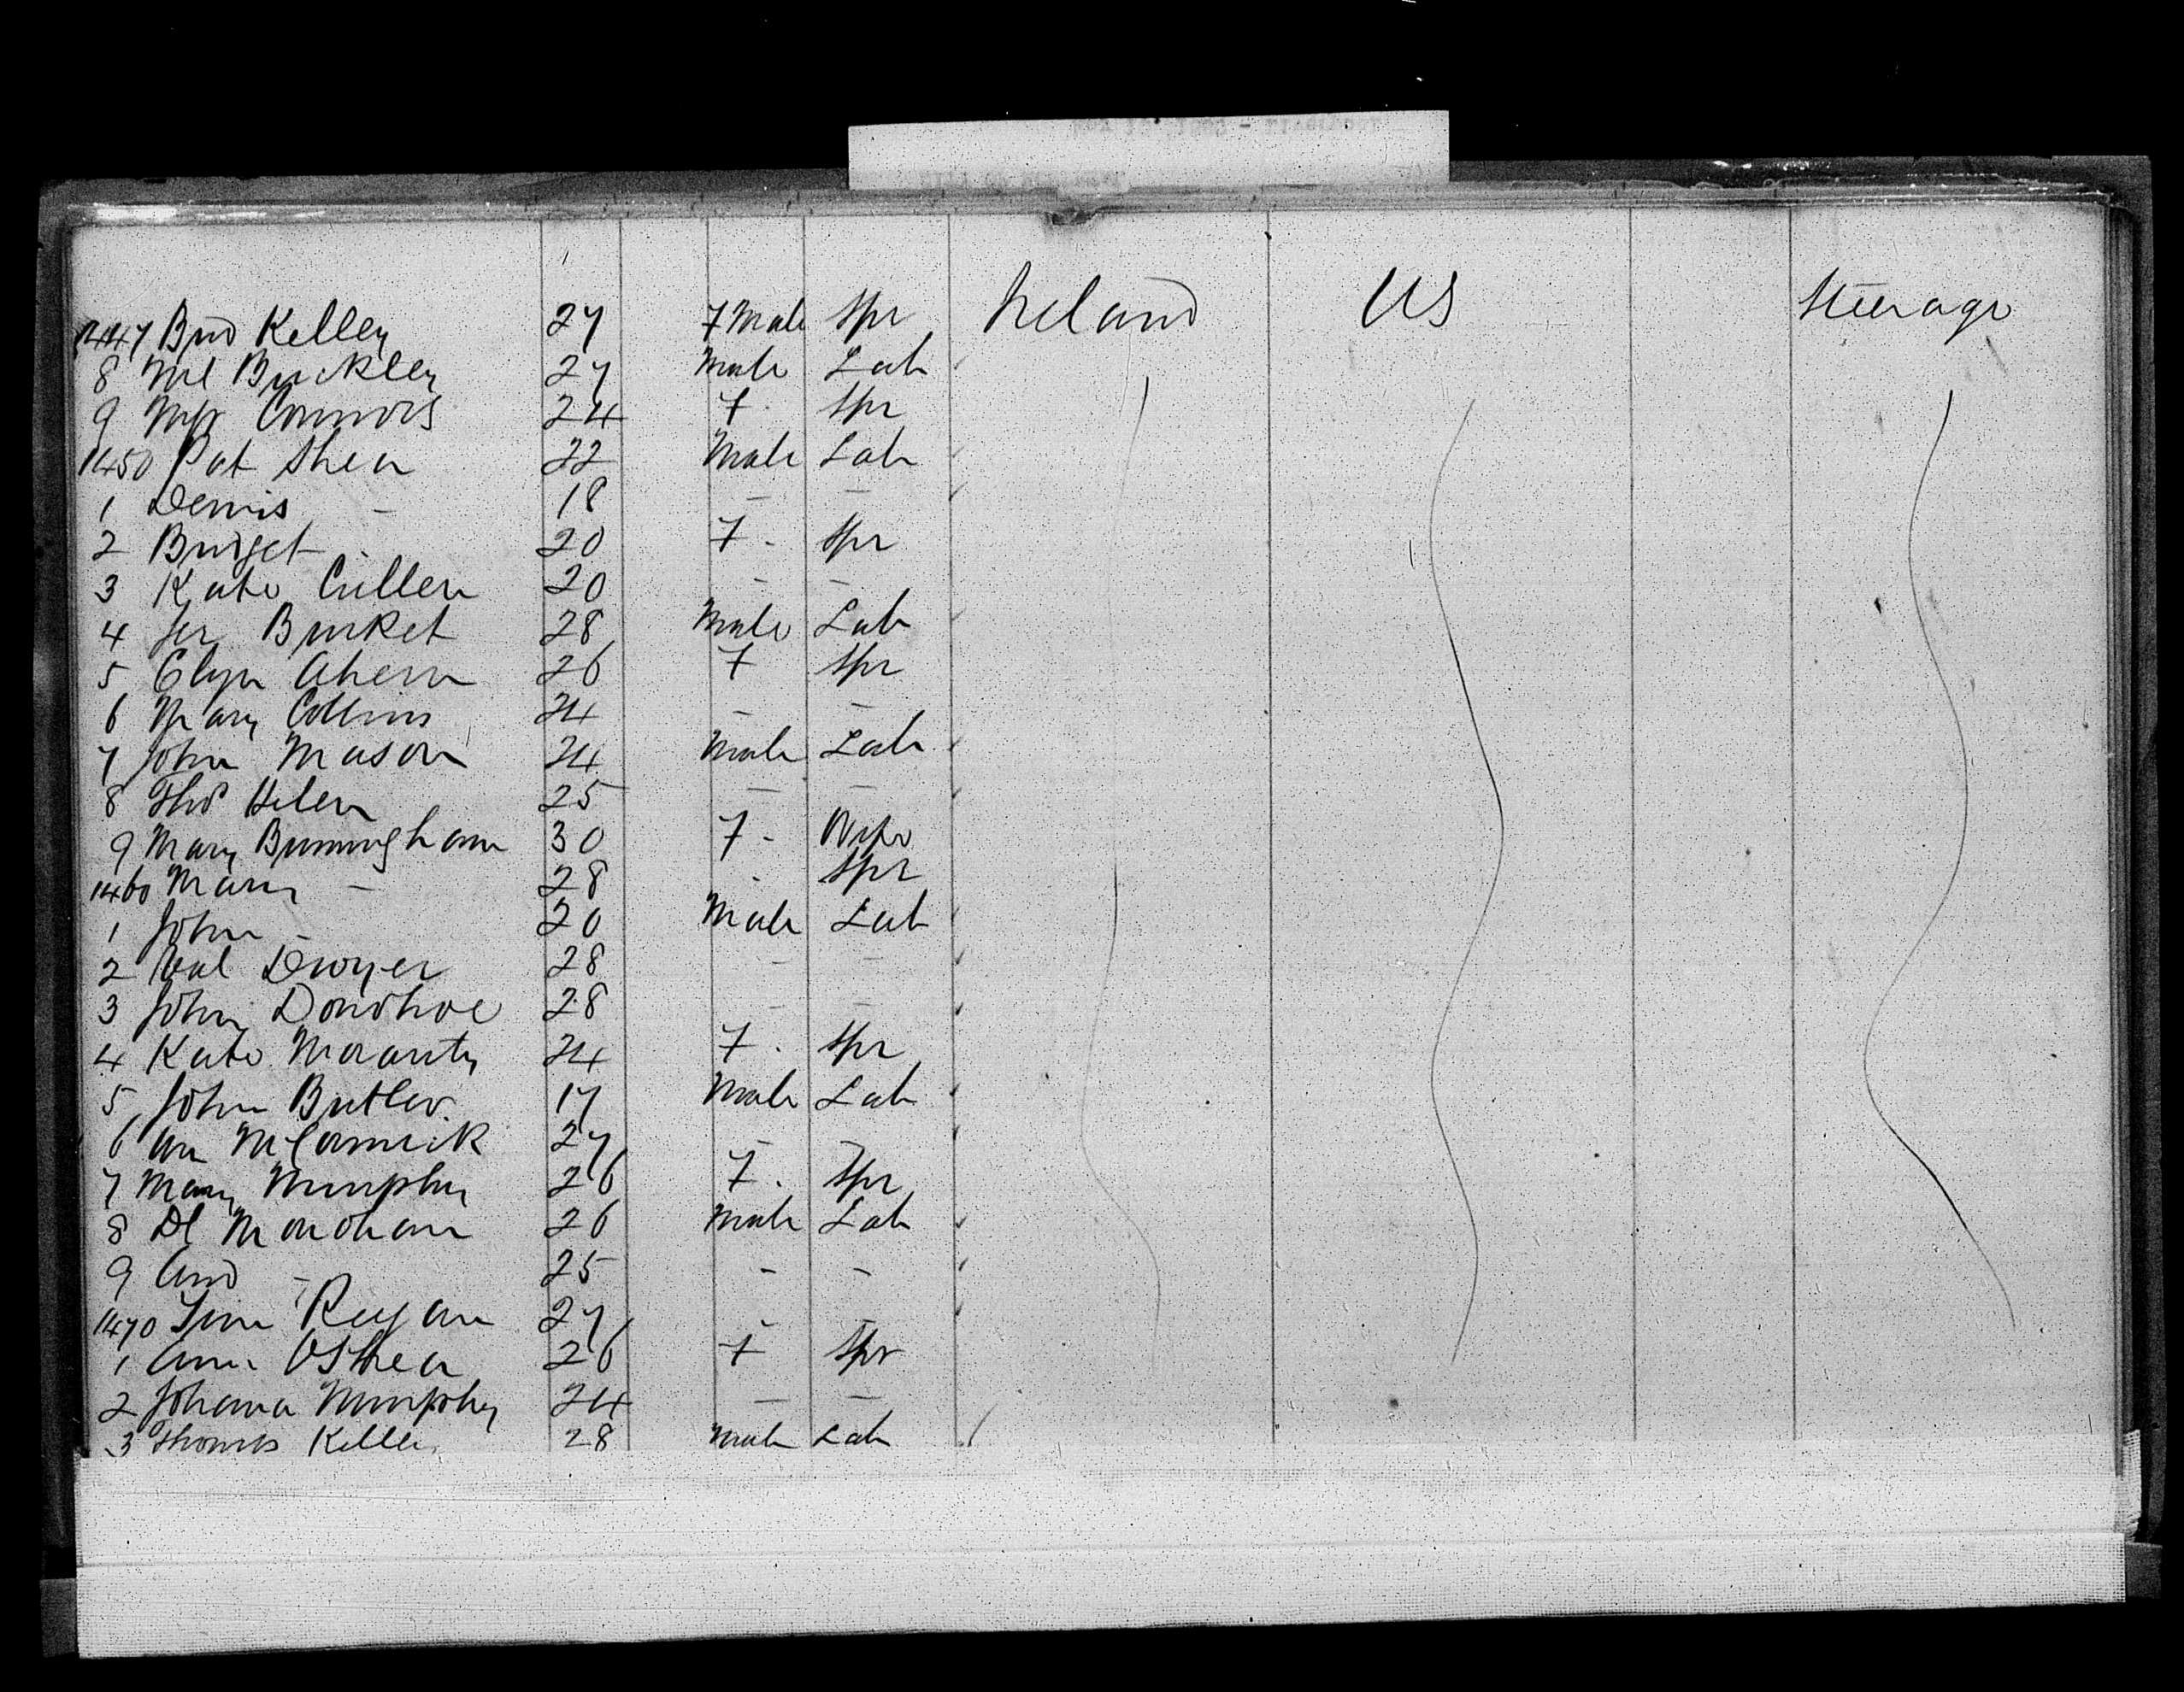 1447 Brid Kelley 27 7 Male Spr Ireland US Steerage
8 Ml Buckley 27 Male Lab
9 Connors 24 7 Spr
1450 Pat Shea 22 Male Lab
1 Dennis - 18 - -
2 Bridget - 20 7 - Spr
3 Kate Cullen 20 - -
4 Jer Burket 28 Male Lab
5 Ahern 26 7 Spr
6 Mary Collins 24 - -
7 John Mason 24 Male Lab
8 Thos 25 - -
9 Mary Burmingham 30 7 - Wife
1460 Mary - 28 - Spr
1 John - 20 Male Lab
2 Val Dwyer 28 - -
3 John Donohoe 28 - -
4 Kate Moriarity 24 7 . Spr
5 John Butler 17 Male Lab
6 McCormick 27 - -
7 Mary Murphy 26 7 . Spr
8 Dl Monohan 26 Male Lab
9 And - 25 - -
1470 Tim Regan 27 - -
1 Ann OShea 26 7 Spr
2 Johana Murphy 24 - -
3 Thomas 28 Male Lab